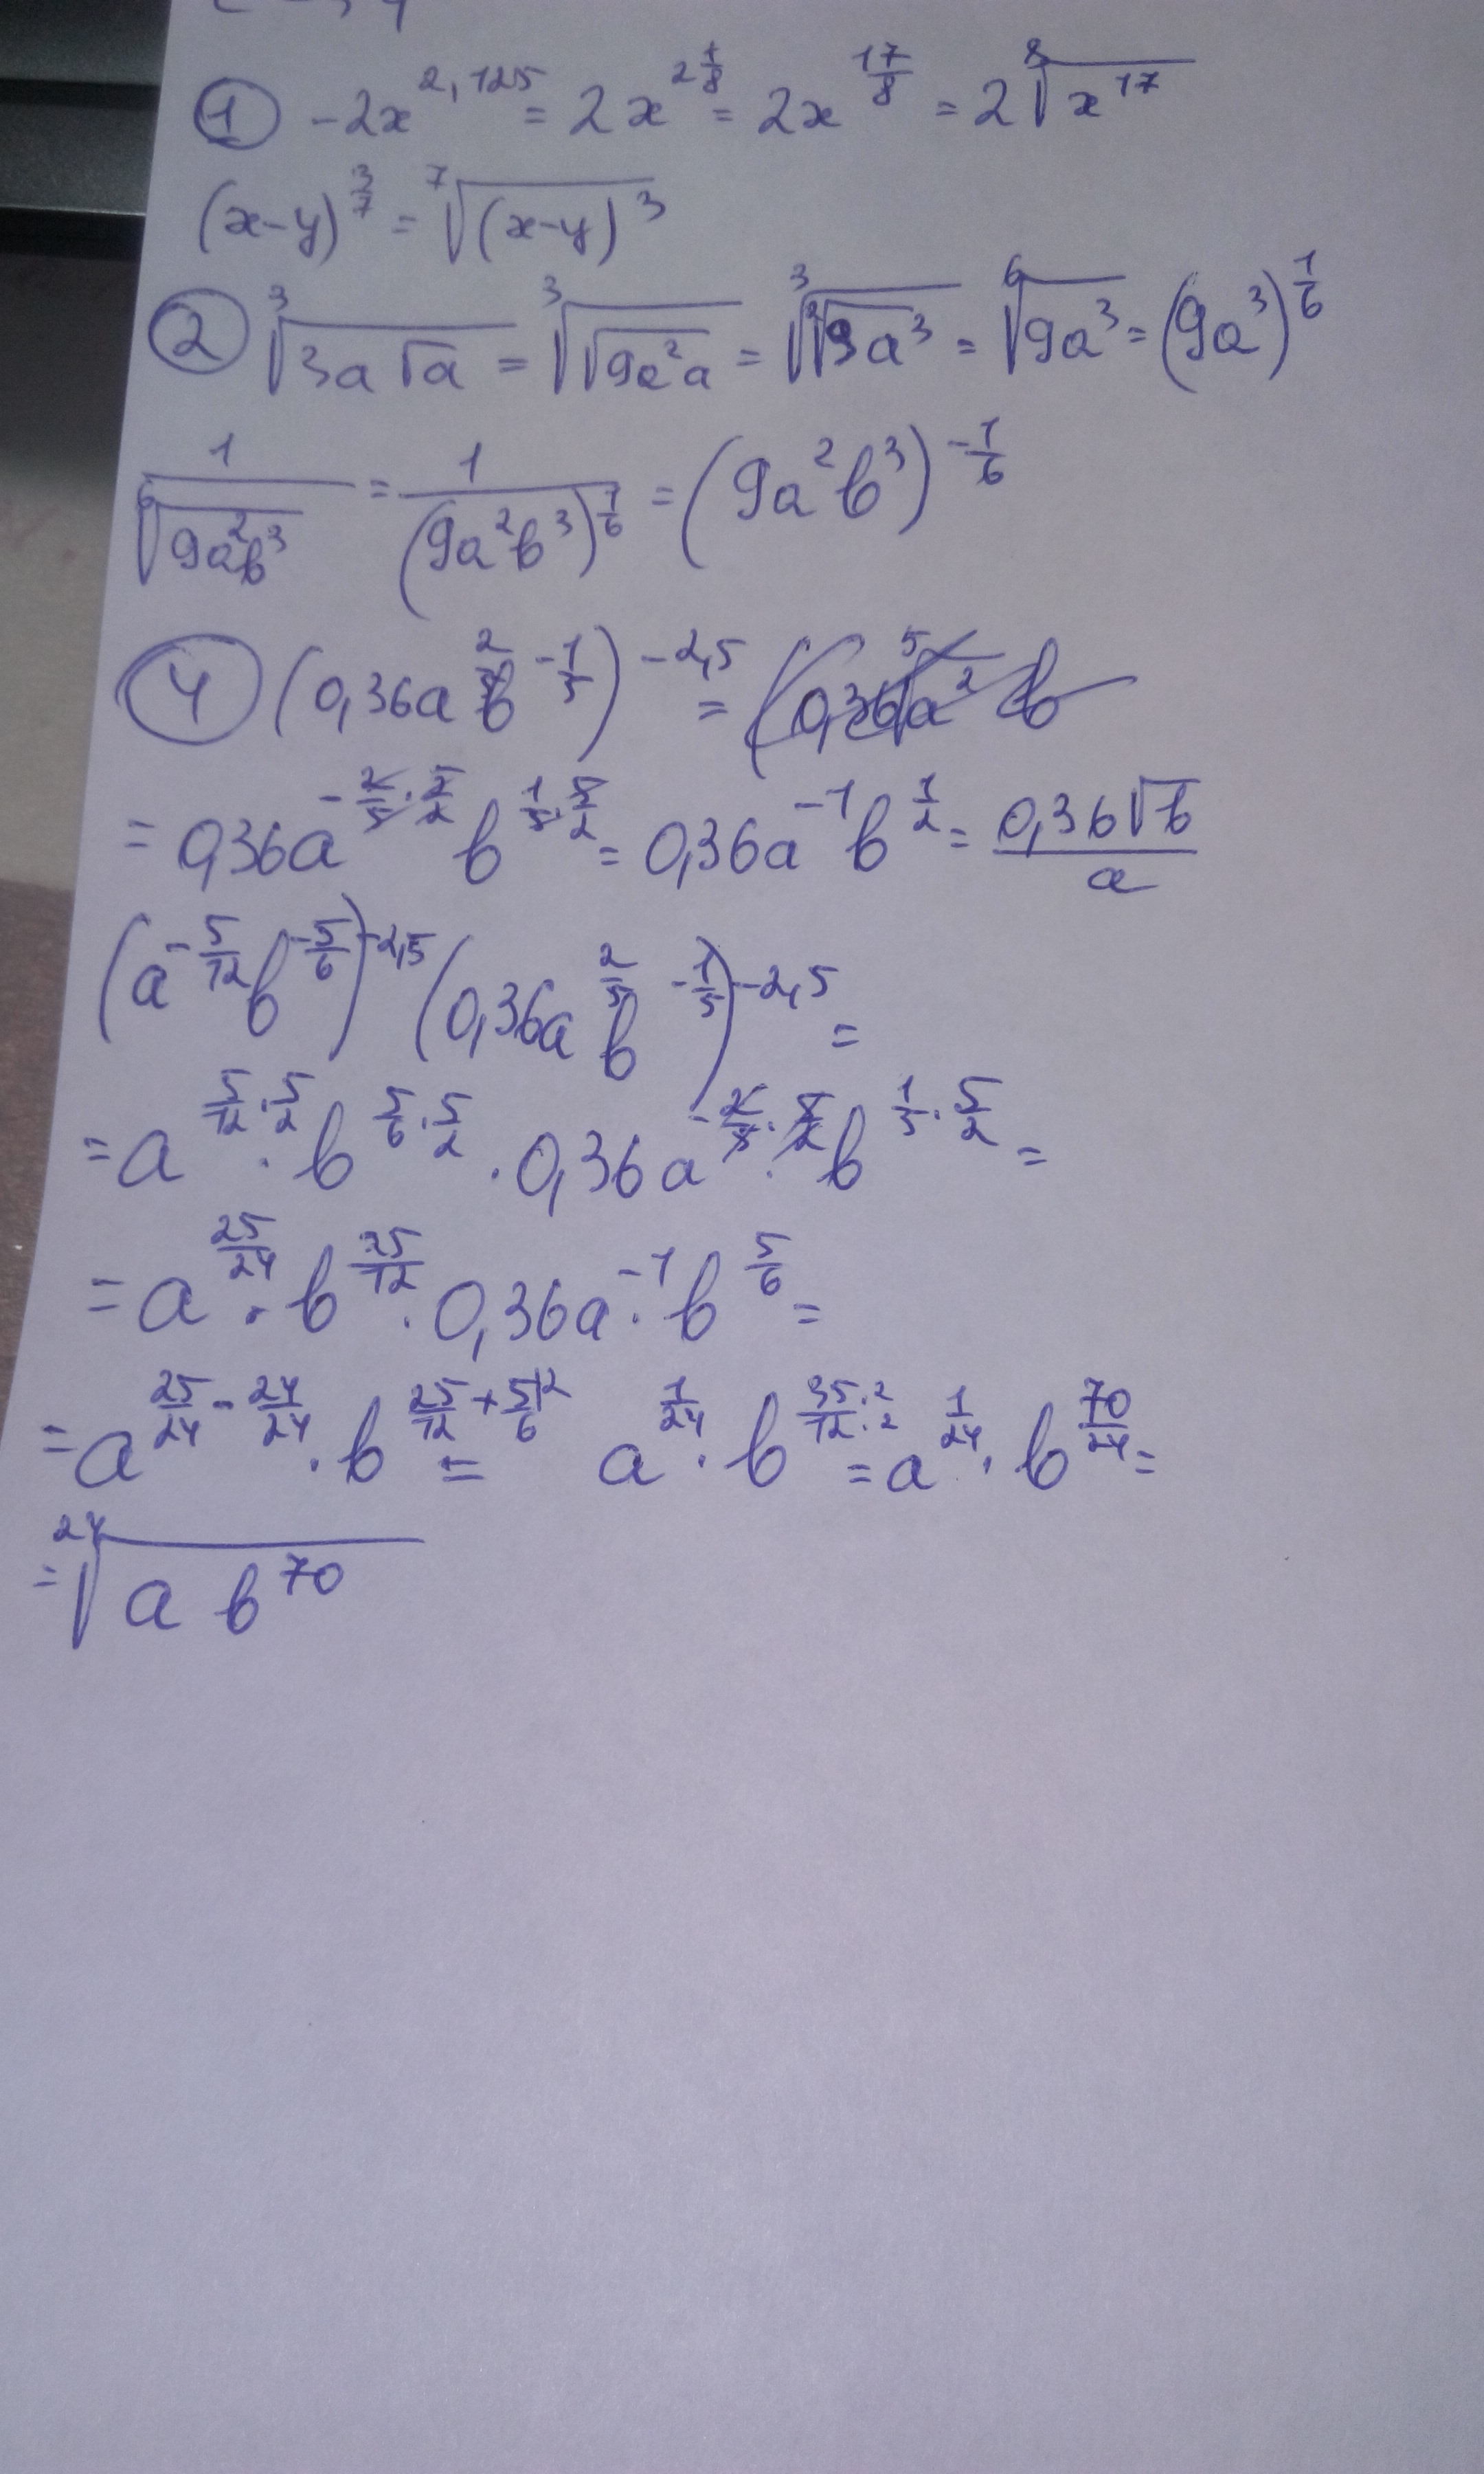 ① -2x^{2,125} = 2x^{2\frac{1}{8}} = 2x^{\frac{17}{8}} = 2\sqrt[8]{x^{17}}
(x-y)^{\frac{3}{7}} = \sqrt[7]{(x-y)^3}
② \sqrt[3]{3a\sqrt{a}} = \sqrt[3]{\sqrt{9a^2a}} = \sqrt[3]{\sqrt{9a^3}} = \sqrt[6]{9a^3} = (9a^3)^{\frac{1}{6}}
\frac{1}{\sqrt[6]{9a^2b^3}} = \frac{1}{(9a^2b^3)^{\frac{1}{6}}} = (9a^2b^3)^{-\frac{1}{6}}
④ (0,36a^{\frac{2}{5}}b^{-\frac{1}{5}})^{-2,5} = (0,36\sqrt[5]{a^2} b
= 0,36a^{-\frac{2}{5}·\frac{5}{2}} b^{\frac{1}{5}·\frac{5}{2}} = 0,36a^{-1}b^{\frac{1}{2}} = \frac{0,36\sqrt{b}}{a}
(a^{-\frac{5}{12}}b^{-\frac{5}{6}})^{-2,5}(0,36a^{\frac{2}{5}}b^{-\frac{1}{5}})^{-2,5} =
= a^{\frac{5}{12}·\frac{5}{2}} · b^{\frac{5}{6}·\frac{5}{2}} · 0,36a^{-\frac{2}{5}·\frac{5}{2}} · b^{\frac{1}{5}·\frac{5}{2}} =
= a^{\frac{25}{24}} · b^{\frac{25}{12}} · 0,36a^{-1} · b^{\frac{5}{6}} =
= a^{\frac{25}{24}-\frac{24}{24}} · b^{\frac{25}{12}+\frac{5}{6}|2} = a^{\frac{1}{24}} · b^{\frac{35·2}{12·2}} = a^{\frac{1}{24}} · b^{\frac{70}{24}} =
= \sqrt[24]{a b^{70}}